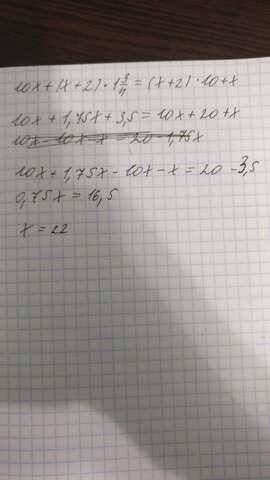 10x+(x+2)·1 3/4=(x+2)·10+x
10x+1,75x+3,5=10x+20+x
10x-10x-x=20-1,75x
10x+1,75x-10x-x=20-3,5
0,75x=16,5
x=22